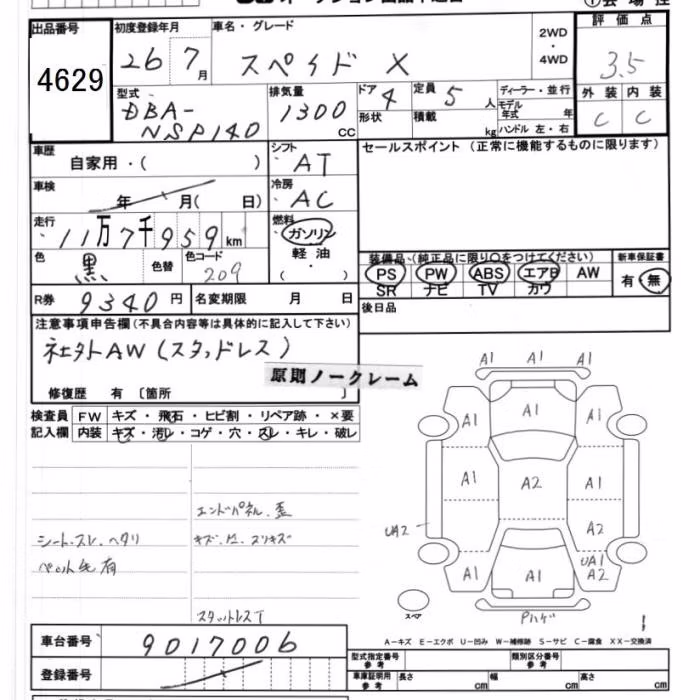 出品番号
4629
初度登録年月
26 7月
車名・グレード
スペイド X
2WD
・
4WD
評価点
3.5
外装 内装
C C
型式
DBA-
NSP140
排気量
1300
CC
ドア 4
形状
定員 5 人
積載 kg
ディーラー・並行
モデル年式 年
ハンドル 左・右
車歴
自家用・( )
シフト
AT
セールスポイント (正常に機能するものに限ります)
車検
年 月( 日)
冷房
AC
走行
11万7千959km
燃料
ガソリン
軽油
・( )
色
黒
色替
色コード
209
装備品(純正品に限り○をつけてください)
PS PW ABS エアB AW
SR ナビ TV カワ
新車保証書
有・無
R券 9340円
名変期限 月 日
後日品
注意事項申告欄(不具合内容等は具体的に記入して下さい)
社外AW(スタッドレス)
原則ノークレーム
修復歴 有 〔箇所 〕
検査員
記入欄
FW キズ・飛石・ヒビ割・リペア跡・×要
内装 キズ・汚レ・コゲ・穴・スレ・キレ・破レ
エンドパネル.歪
シート.スレ.ヘタリ
キズ.凹.スリキズ
ペット毛有
スタットレスT
A1 A1 A1
A1
A1 A1
A1 A2 A1
UA2 A2
UA1
A1 A1 A2
スペア
Pハゲ
A-キズ E-エクボ U-凹み W-補修跡 S-サビ C-腐食 XX-交換済
車台番号
9017006
登録番号
型式指定番号
参考
類別区分番号
参考
車庫証明用
参考
長さ cm
幅 cm
高さ cm